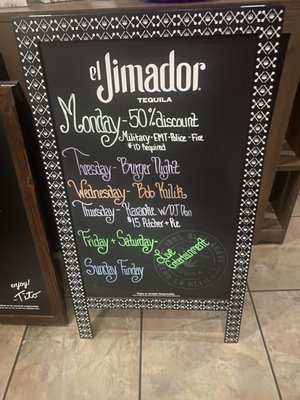 el Jimador
TEQUILA
Monday - 50% discount
Military - EMT - Police - Fire
$10 Required
Tuesday - Burger Night
Wednesday - Bob Kulik
Thursday - Karaoke w/DJ Von
$15 Pitcher + Pie
Friday + Saturday -
Live
Entertainment
Sunday Funday
enjoy!
Tito